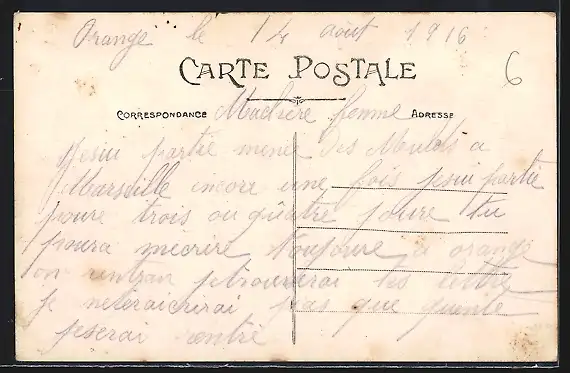 Orange le 14 août 1916
6
CARTE POSTALE
CORRESPONDANCE
ADRESSE
Ma chère femme
Jesui partie mené des Mulets a
Marseille encore une fois jesui partie
pour trois ou quatre joure tu
poura mécrire toujours a orange
on rentran jetrouverai tes lettre
je neteraicrirai pas que quante
jeserai rentré